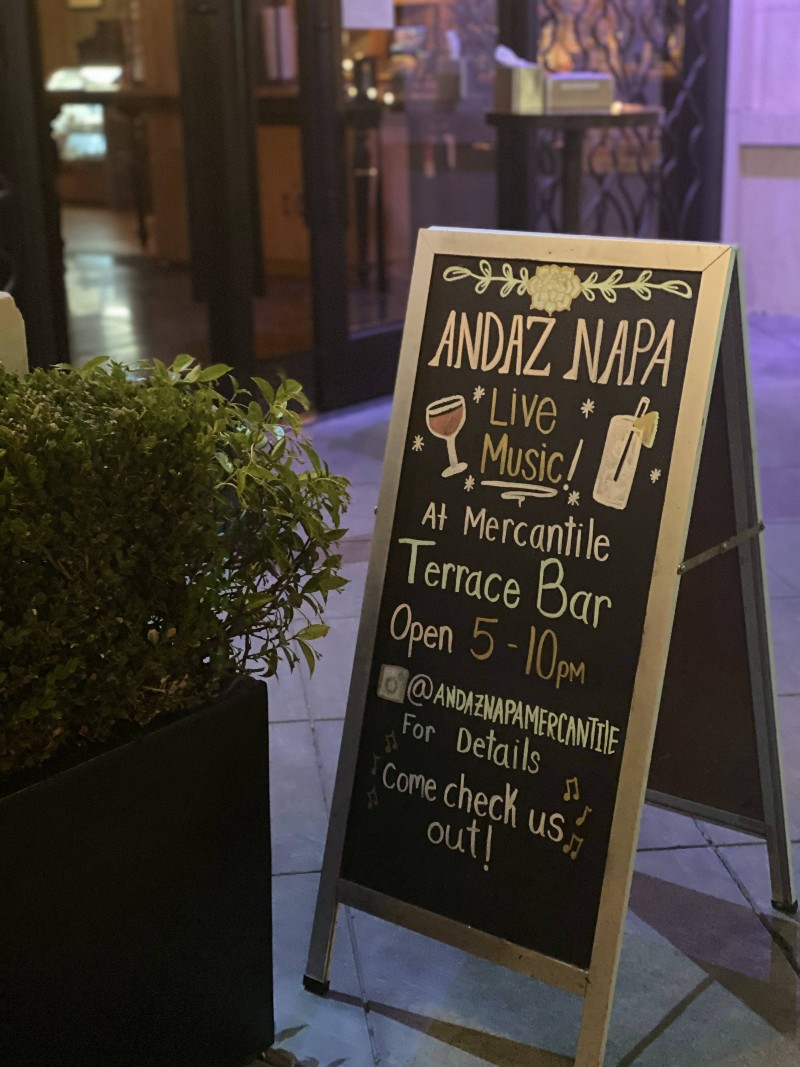 ANDAZ NAPA
Live
Music!
At Mercantile
Terrace Bar
Open 5-10PM
@ANDAZNAPAMERCANTILE
For Details
Come check us
out!